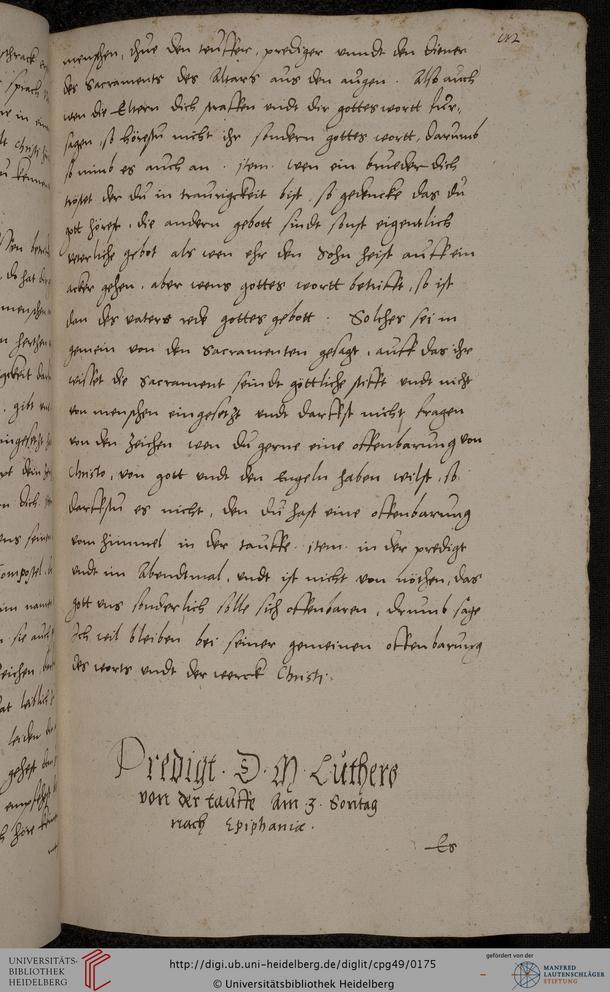 menschen, thue den teuffer, prediger unndt den diener
des Sacraments des Altars aus den augen. Also auch
wen die Eltern dich straffen undt dir gottes wortt fur,
sagen, so hörestu nicht ihr sondern gottes wortt, darumb
so nimb es auch an. item. wen ein brueder dich
tröstet der du in traurigckeit bist, so gedencke das du
gott hörest, die andern gebott sindt sonst eigentlich
veterliche gebot als wen ehr den Sohn heist auff ein
acker gehen, aber wens gottes wortt betrifft, so ist
dan des vaters rede gottes gebott. Solches sei in
gemein von den Sacramenten gesagt, auff das ihr
wisset die Sacrament seindt göttliche stifft undt nicht
von menschen eingesetzt undt darffst nicht fragen
von den zeichen wen du gerne eine offenbarung von
Christo, von gott undt den Engeln haben wilst, so
darffstu es nicht, den du hast eine offenbarung
vom himmel in der tauffe. item. in der predigt
undt im Abendtmal, undt ist nicht von nöthen, das
gott uns sonderlich solle sich offenbaren, drumb sage
Ich wil bleiben bei seiner gemeinen offenbarung
des worts undt der werck Christi.
Predigt. D. M. Luthers
von der tauffe Am 3. Sontag
nach Epiphaniæ.
Es
UNIVERSITÄTS-
BIBLIOTHEK
HEIDELBERG
http://digi.ub.uni-heidelberg.de/diglit/cpg49/0175
© Universitätsbibliothek Heidelberg
gefördert von der
MANFRED
LAUTENSCHLÄGER
STIFTUNG